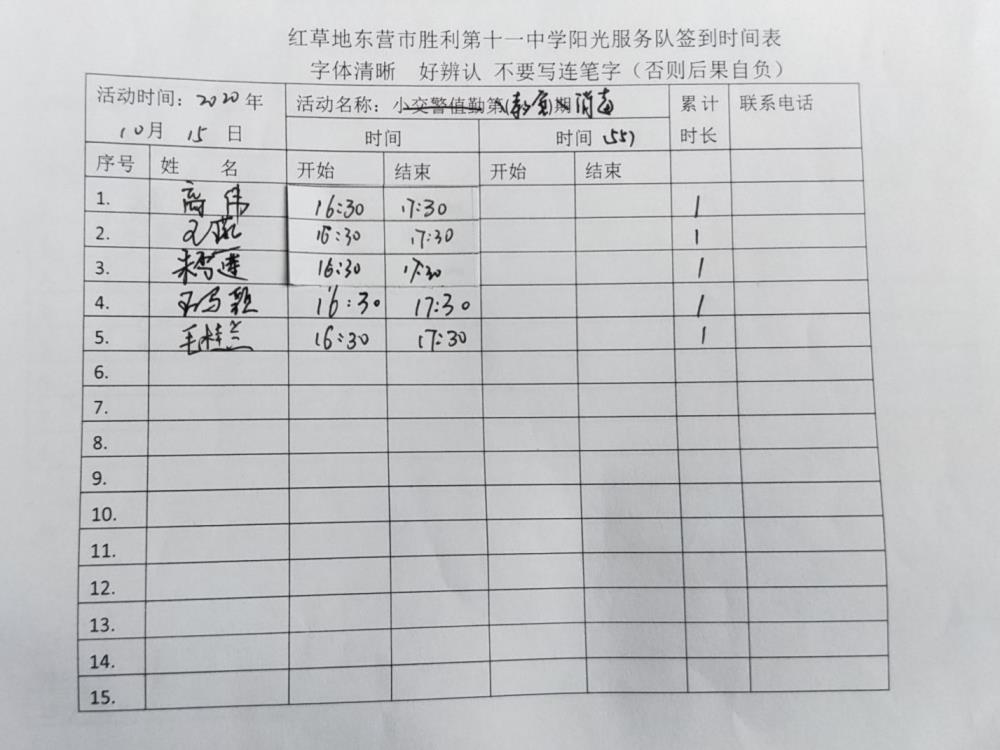 红草地东营市胜利第十一中学阳光服务队签到时间表
字体清晰 好辨认 不要写连笔字（否则后果自负）
活动时间：2020年 活动名称：小交警值勤第(教室)期消毒 累计 联系电话
10月 15 日 时间 时间 (55) 时长
序号 姓 名 开始 结束 开始 结束
1. 高伟 16:30 17:30 1
2. 16:30 17:30 1
3. 16:30 17:30 1
4. 16:30 17:30 1
5. 毛桂兰 16:30 17:30 1
6.
7.
8.
9.
10.
11.
12.
13.
14.
15.